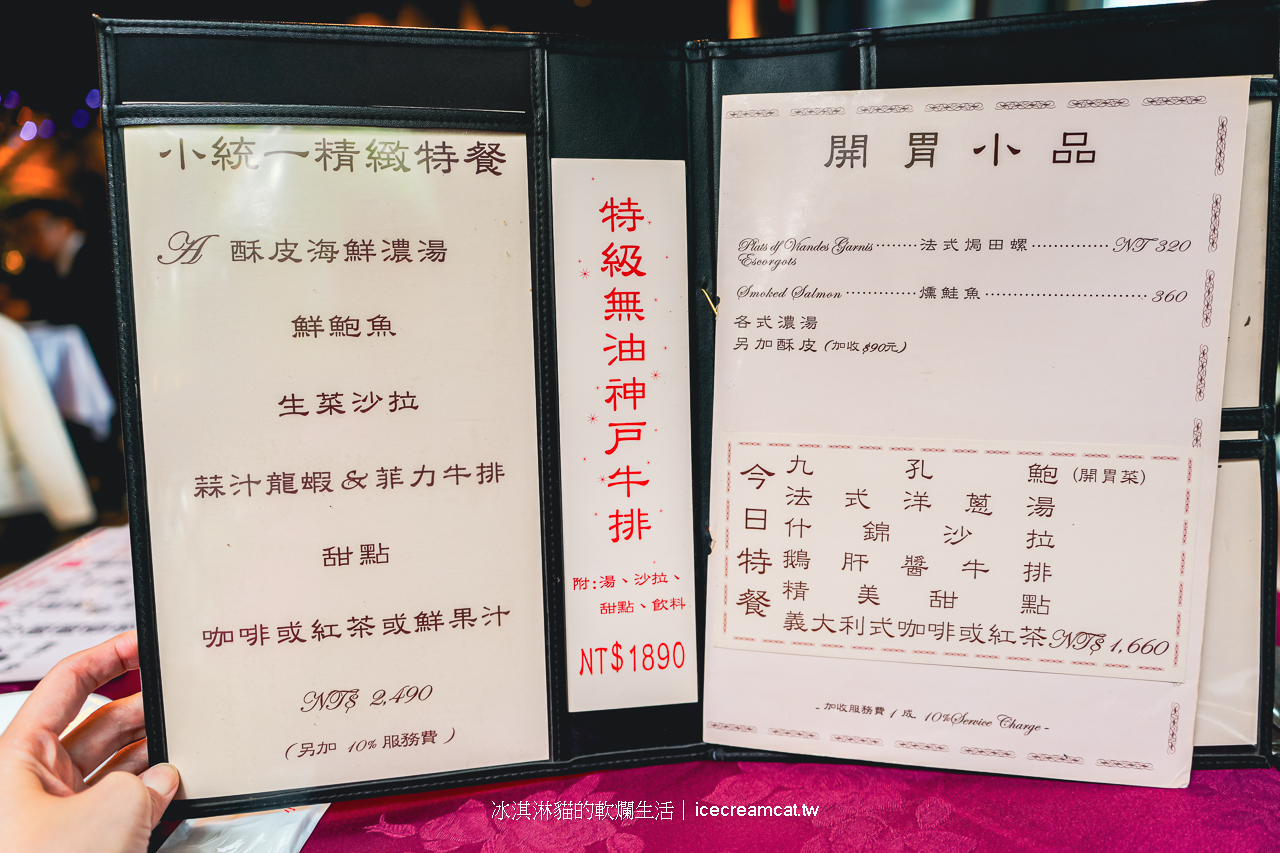 小統一精緻特餐
A 酥皮海鮮濃湯
鮮鮑魚
生菜沙拉
蒜汁龍蝦&菲力牛排
甜點
咖啡或紅茶或鮮果汁
NT$ 2,490
(另加 10% 服務費)
特級無油神戶牛排
附:湯、沙拉、
甜點、飲料
NT$1890
開胃小品
Plats df Viandes Garnis········法式焗田螺··············NT 320
Escorgots
Smoked Salmon·············燻鮭魚··························360
各式濃湯
另加酥皮(加收$90元)
今日特餐
九孔鮑(開胃菜)
法式洋蔥湯
什錦沙拉
鵝肝醬牛排
精美甜點
義大利式咖啡或紅茶NT$1,660
-加收服務費1成 10%Service Charge-
冰淇淋貓的軟爛生活|icecreamcat.tw